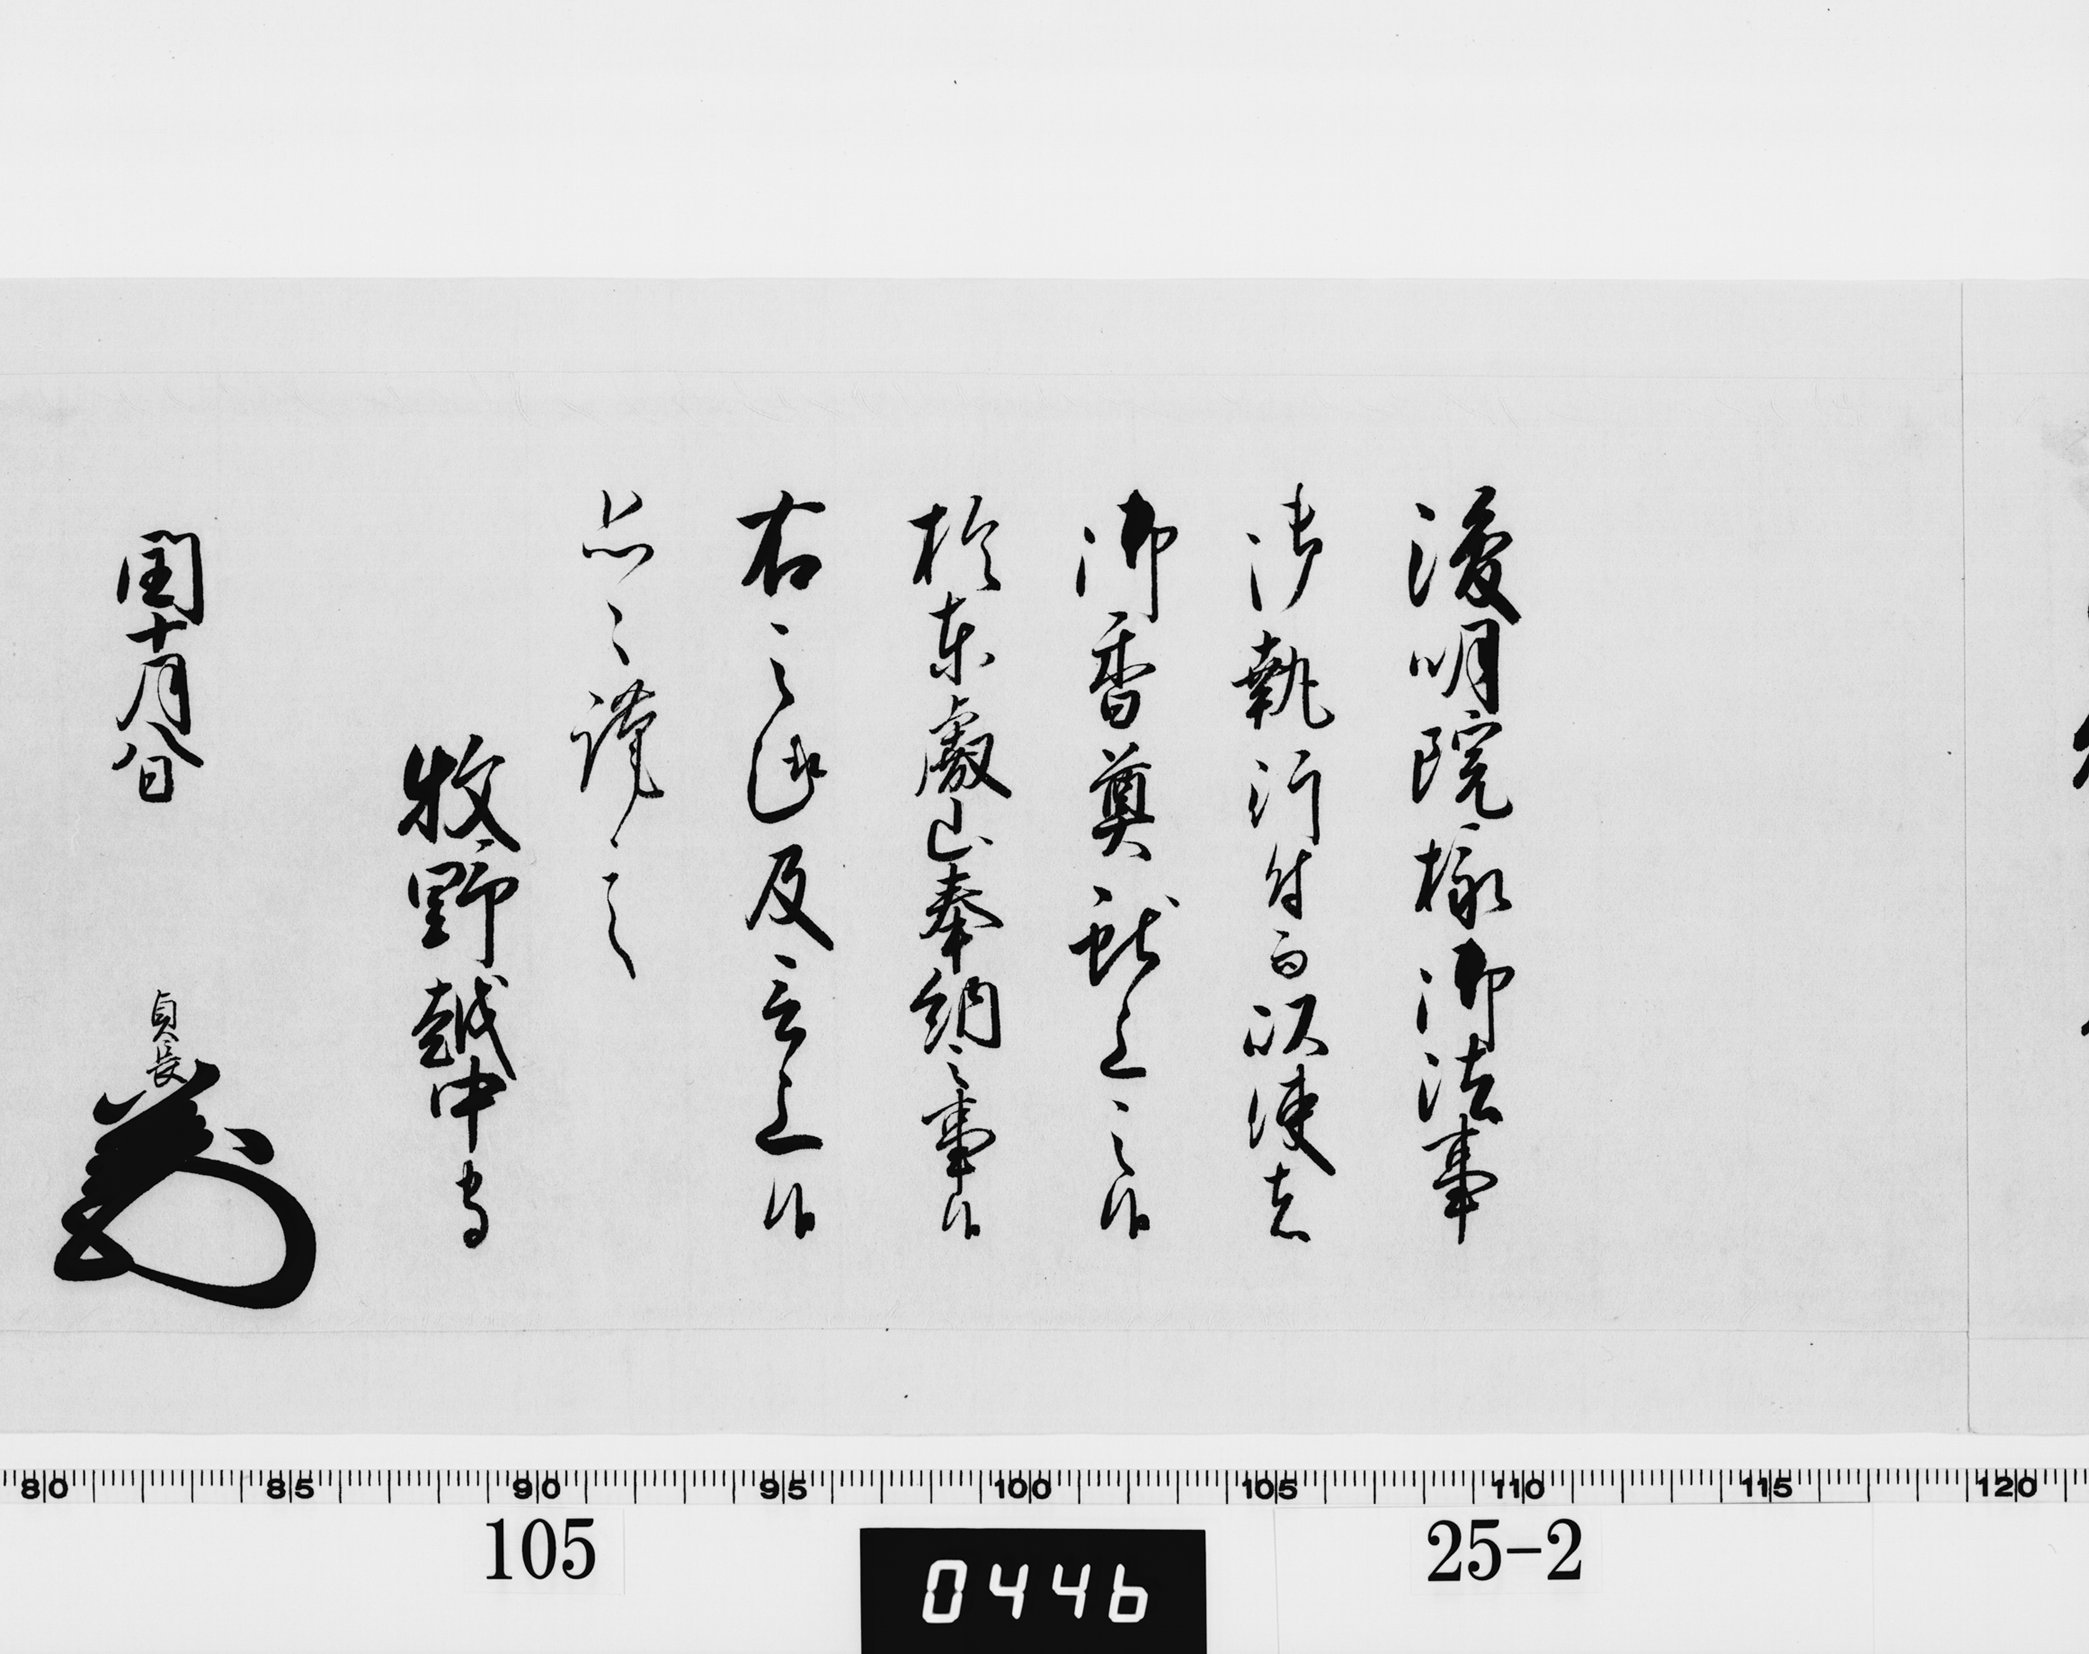 浚明院様御法事
御執行付而以使者
御香奠献上之候
於東叡山奉納之事候
右之趣及言上候
恐々謹言
牧野越中守
閏十月八日
貞長
80 85 90 95 100 105 110 115 120
105
0446
25-2